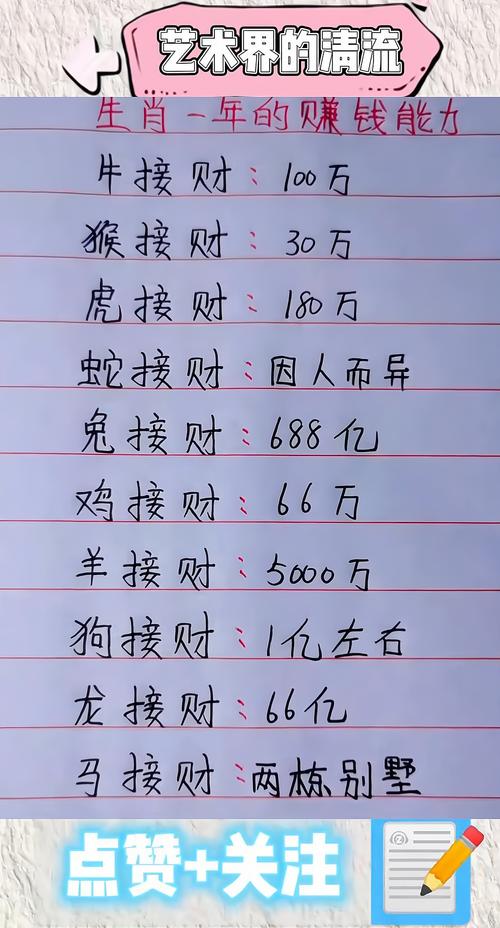 艺术界的清流
生肖一年的赚钱能力
牛接财：100万
猴接财：30万
虎接财：180万
蛇接财：因人而异
兔接财：688亿
鸡接财：66万
羊接财：5000万
狗接财：1亿左右
龙接财：66亿
马接财：两栋别墅
点赞+关注